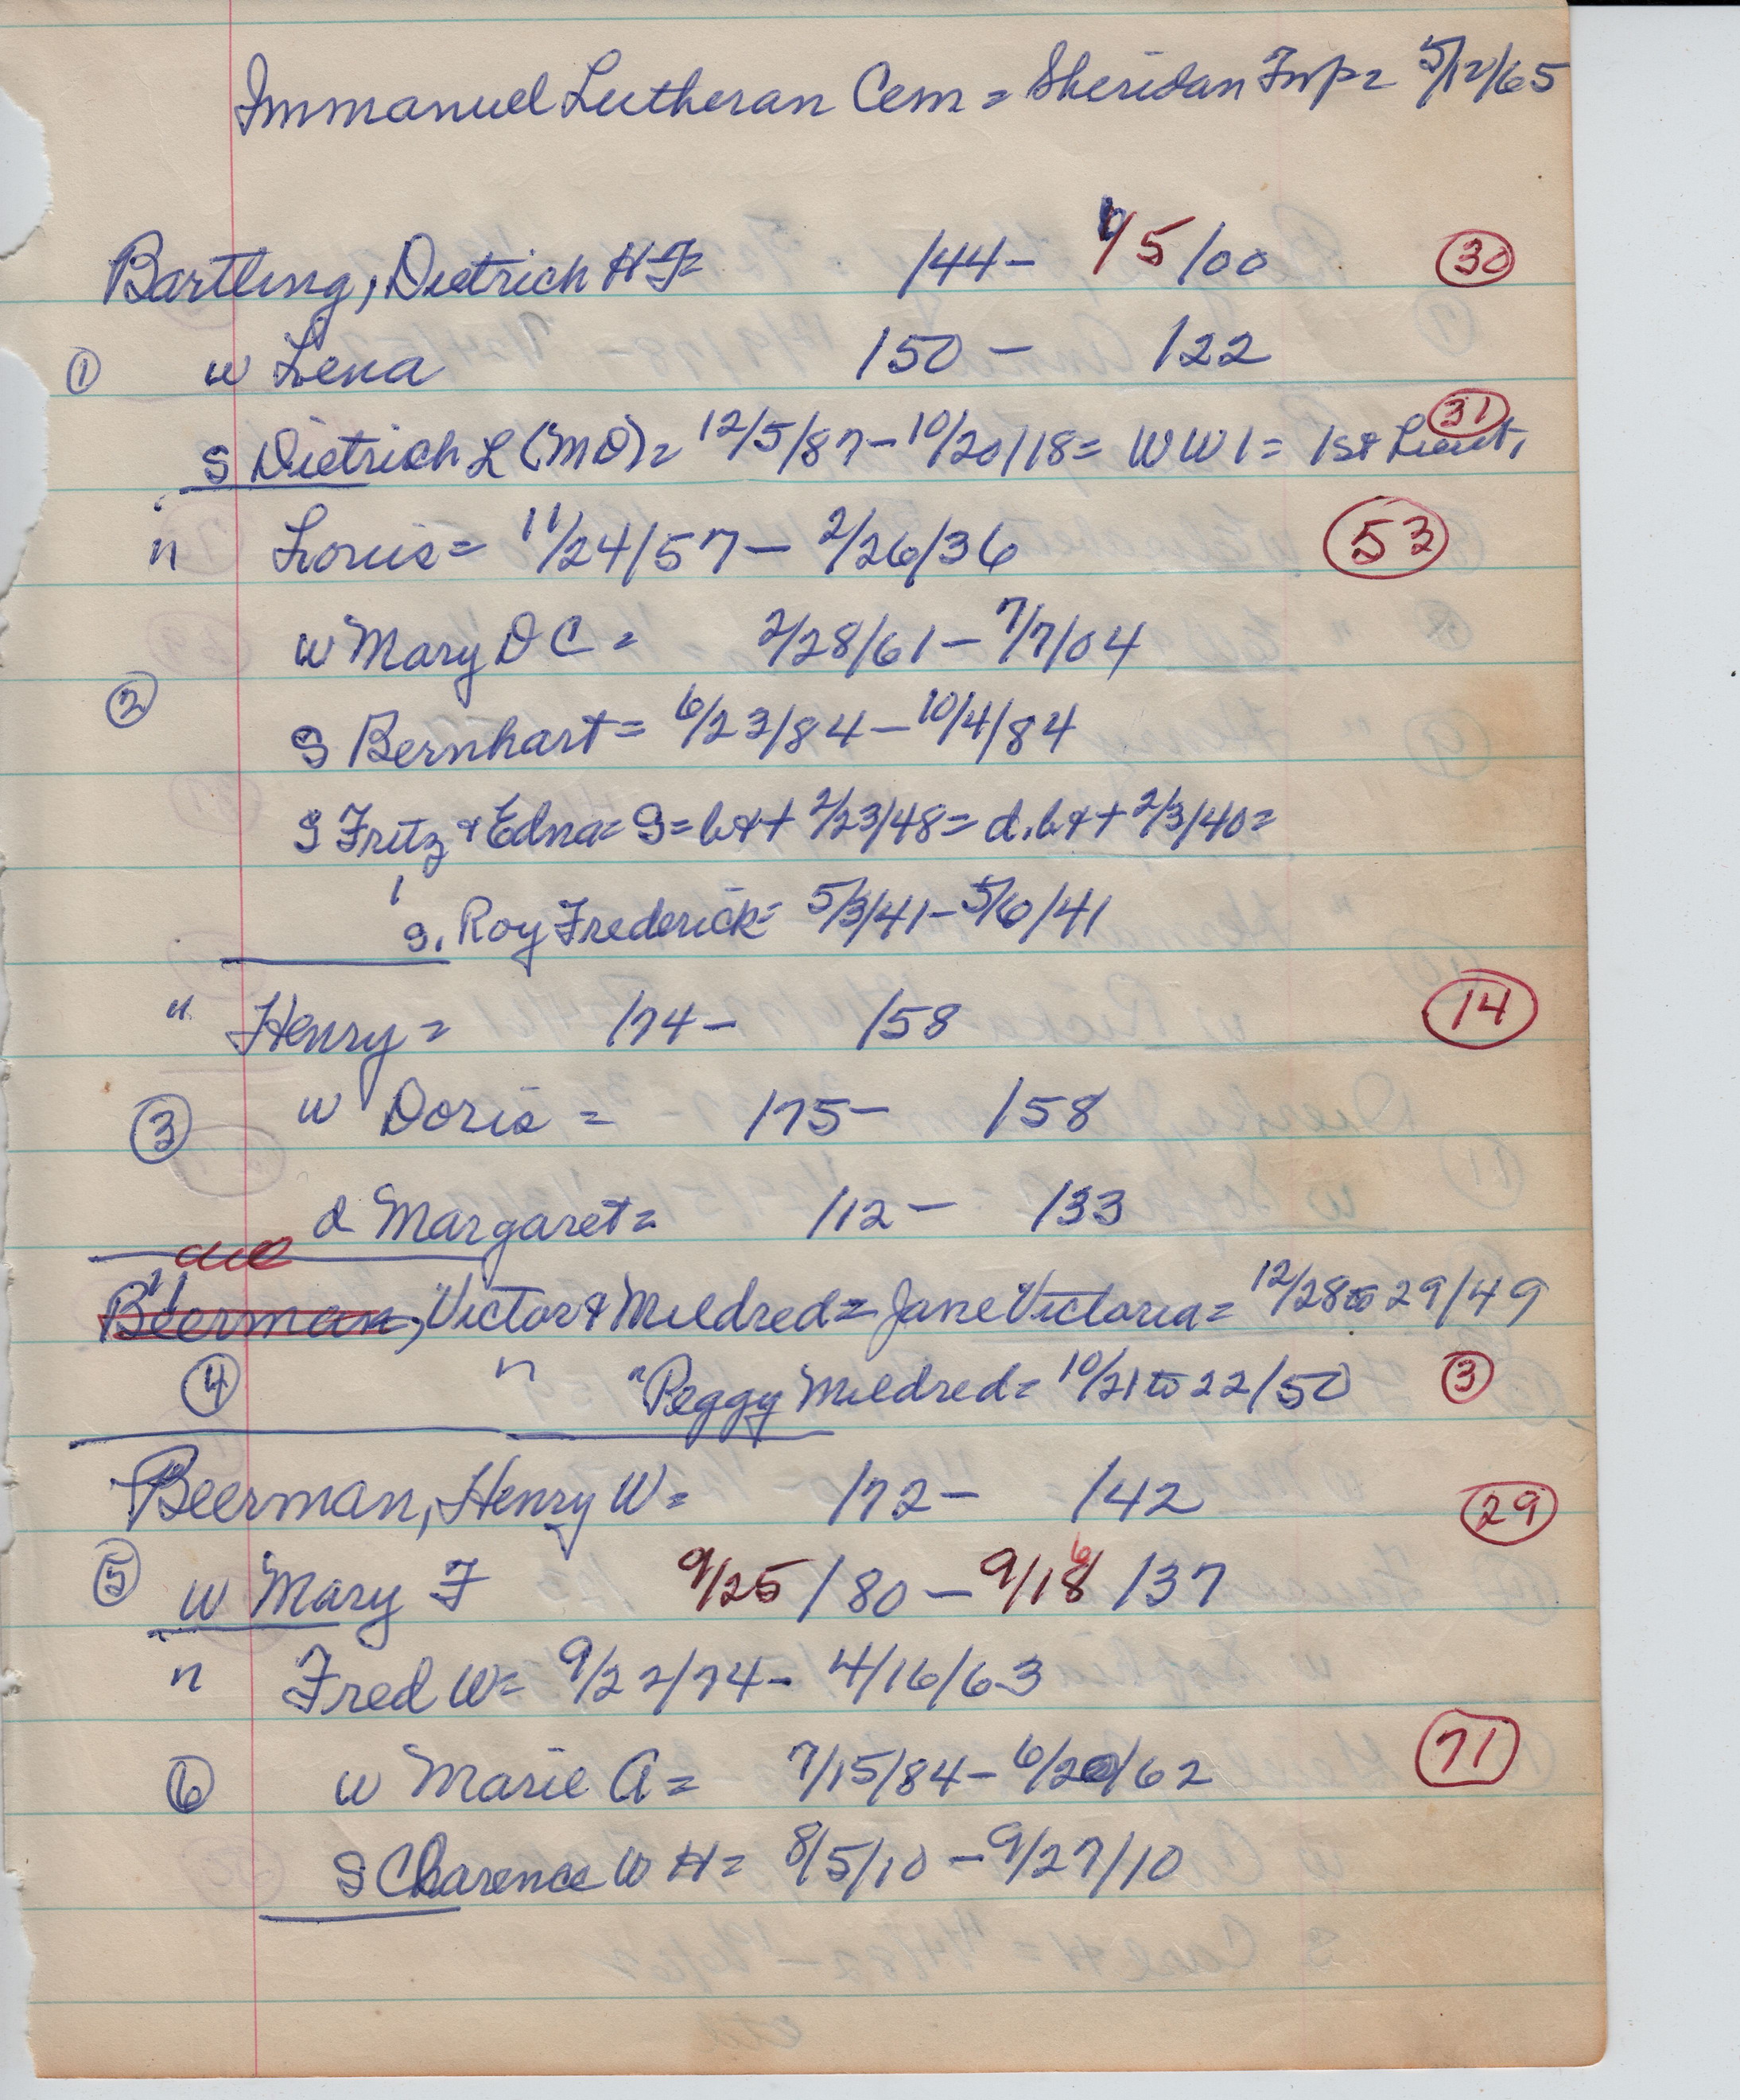 Immanuel Lutheran Cem = Sheridan Twp = 5/12/65
Bartling, Dietrich H F= /44 - 6/5/00 30
1 w Lena /50 - /22
s Dietrich L (MD)= 12/5/87 - 10/20/18 = WW1 = 1st Lieut, 31
" Louis = 11/24/57 - 2/26/36 53
w Mary D C = 2/28/61 - 7/7/04
2
s Bernhart = 6/23/84 - 10/4/84
s Fritz & Edna = s = b&+ 2/23/48 = d. b&+ 2/3/40 =
s. Roy Frederick = 5/3/41 - 5/6/41
" Henry = /74 - /58 14
3 w Doris = /75 - /58
d Margaret = /12 - /33
Beerman, Victor & Mildred = Jane Victoria = 12/28 to 29/49
4 " " Peggy Mildred = 10/21 to 22/50 3
Beerman, Henry W = /72 - /42 29
5 w Mary F 9/25/80 - 9/18/37
6
" Fred W = 9/22/74 - 4/16/63
6 w Marie A = 7/15/84 - 6/20/62 71
s Clarence W H = 8/5/10 - 9/27/10